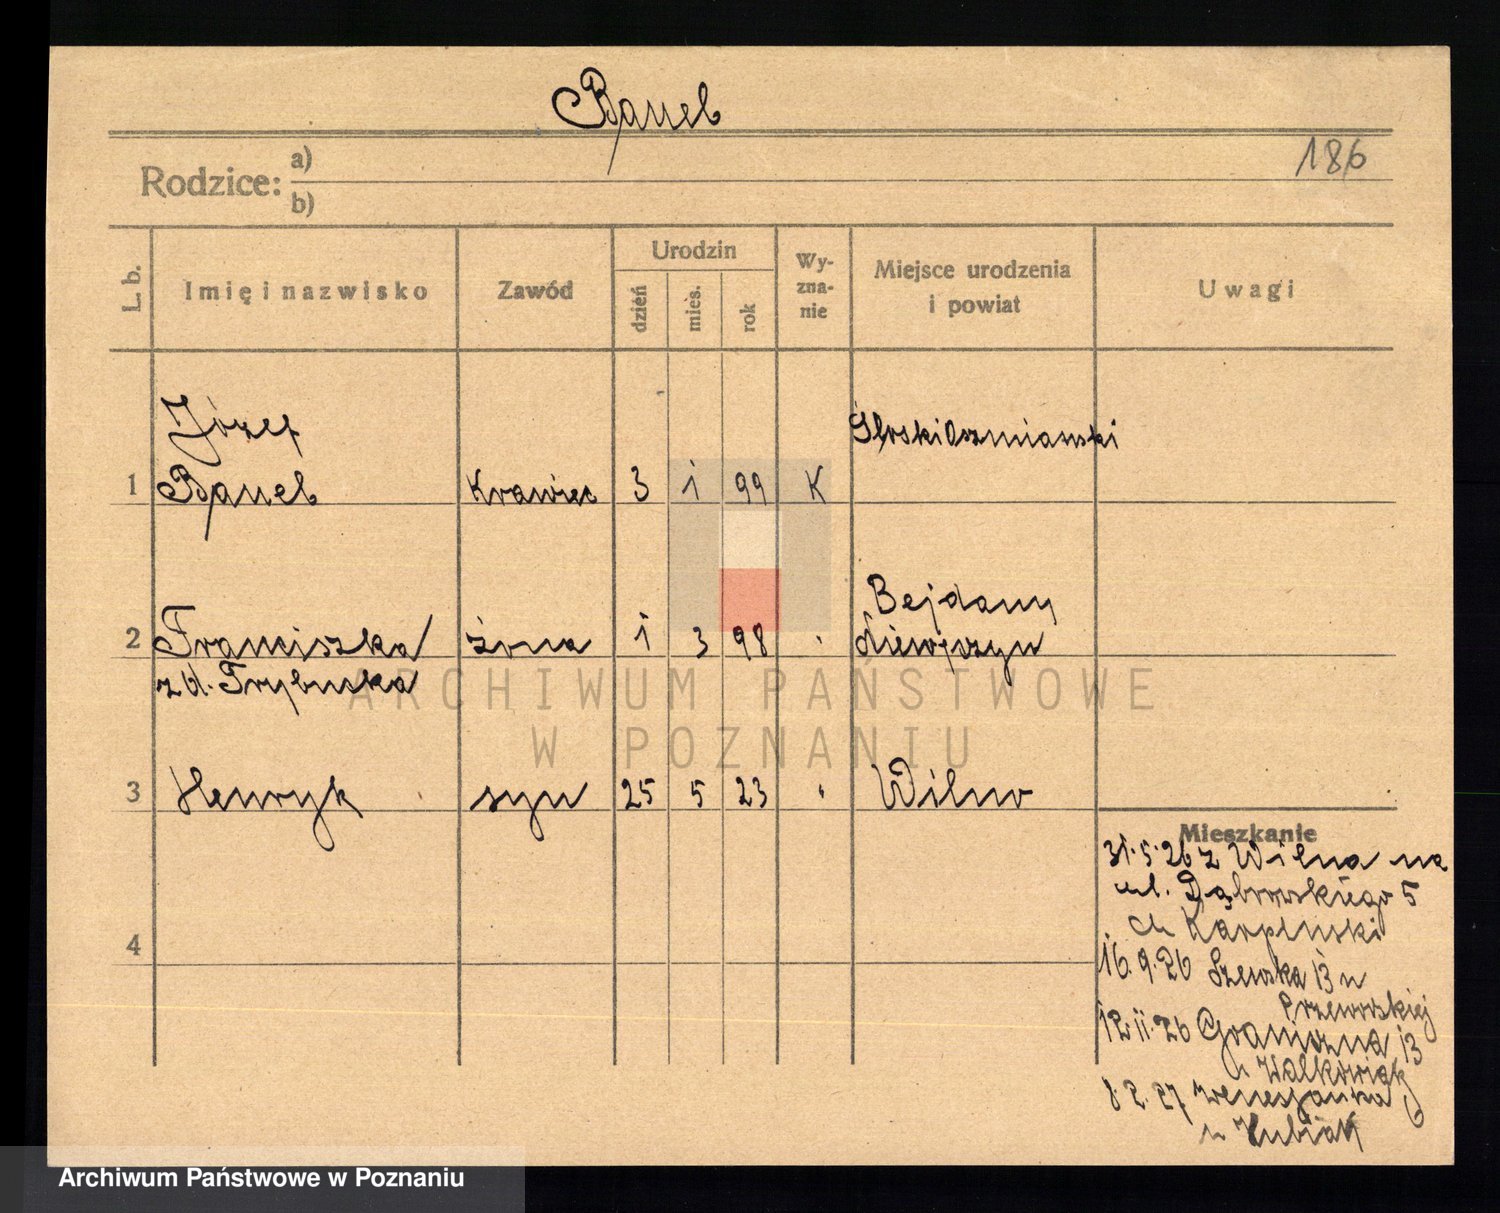 Baueb
186
Rodzice: a)
b)
L. b.
Imię i nazwisko
Zawód
Urodzin
dzień
mies.
rok
Wy-
zna-
nie
Miejsce urodzenia
i powiat
Uwagi
Józef
1 Baueb Krawiec 3 1 99 K
2 Franciszka żona 1 3 98 "
zd. Trybuska
Bejdany
3 Henryk syn 25 5 23 " Wilno
4
Mieszkanie
31.5.26 z Wilna na
ul. Dąbrowskiego 5
Karpinski
16.9.26 Szewska 13 u
Przeworskiej
12.11.26 Graniczna 13
u Walkowiak
8.2.27
u Kubiak
ARCHIWUM PAŃSTWOWE
W POZNANIU
Archiwum Państwowe w Poznaniu